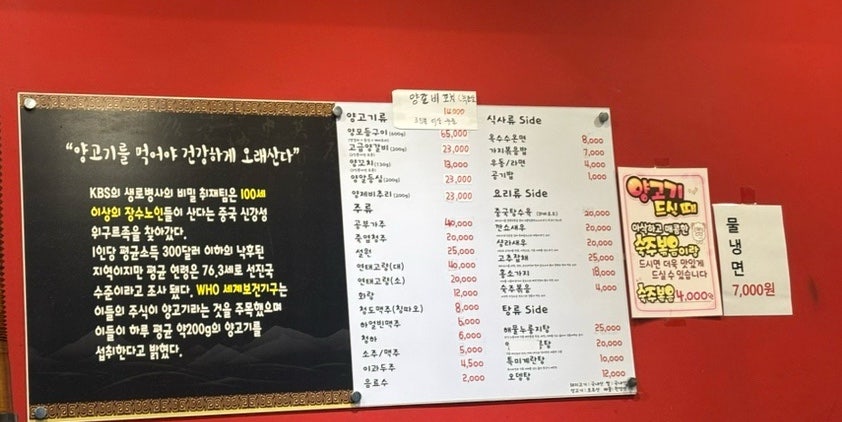 "양고기를 먹어야 건강하게 오래산다"
KBS의 생로병사의 비밀 취재팀은 100세
이상의 장수노인들이 산다는 중국 신강성
위구르족을 찾아갔다.
1인당 평균소득 300달러 이하의 낙후된
지역이지만 평균 연령은 76,3세로 선진국
수준이라고 조사 됐다. WHO 세계보건기구는
이들의 주식이 양고기라는 것을 주목했으며
이들이 하루 평균 약200g의 양고기를
섭취한다고 밝혔다.
양갈비
14,000
양고기류
양모듬구이 (600g) 65,000
고급양갈비 (200g) 23,000
양꼬치 (130g) 13,000
양알등심 (200g) 23,000
양제비추리 (200g) 23,000
주류
공부가주 40,000
죽엽청주 20,000
설원 25,000
연태고량(대) 40,000
연태고량(소) 20,000
화랑 12,000
청도맥주(칭따오) 8,000
하얼빈맥주 6,000
청하 6,000
소주/맥주 5,000
이과두주 4,500
음료수 2,000
식사류 Side
옥수수온면 8,000
가지볶음밥 7,000
우동/라면 4,000
공기밥 1,000
요리류 Side
중국탕수육 20,000
깐쇼새우 20,000
샐러새우 20,000
고추잡채 25,000
홍소가지 18,000
숙주볶음 4,000
탕류 Side
해물누룽지탕 25,000
탕 20,000
토마계란탕 10,000
오뎅탕 12,000
양고기
드실 때
아삭하고 매콤한
숙주볶음이랑
드시면 더욱 맛있게
드실수 있습니다
숙주볶음 4,000원
물냉면
7,000원